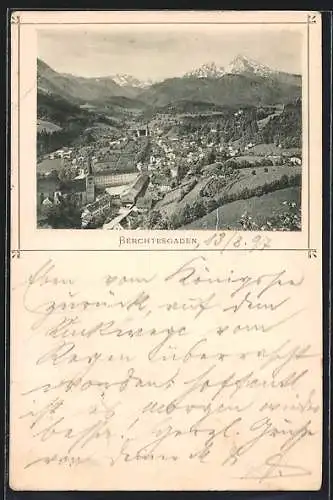 BERCHTESGADEN, 13/8.97
Eben vom Königssee
zurück, auf dem
Rückwege vom
Regen überrascht
worden! hoffentl.
ist es morgen wieder
besser! Herzl. Grüße
von